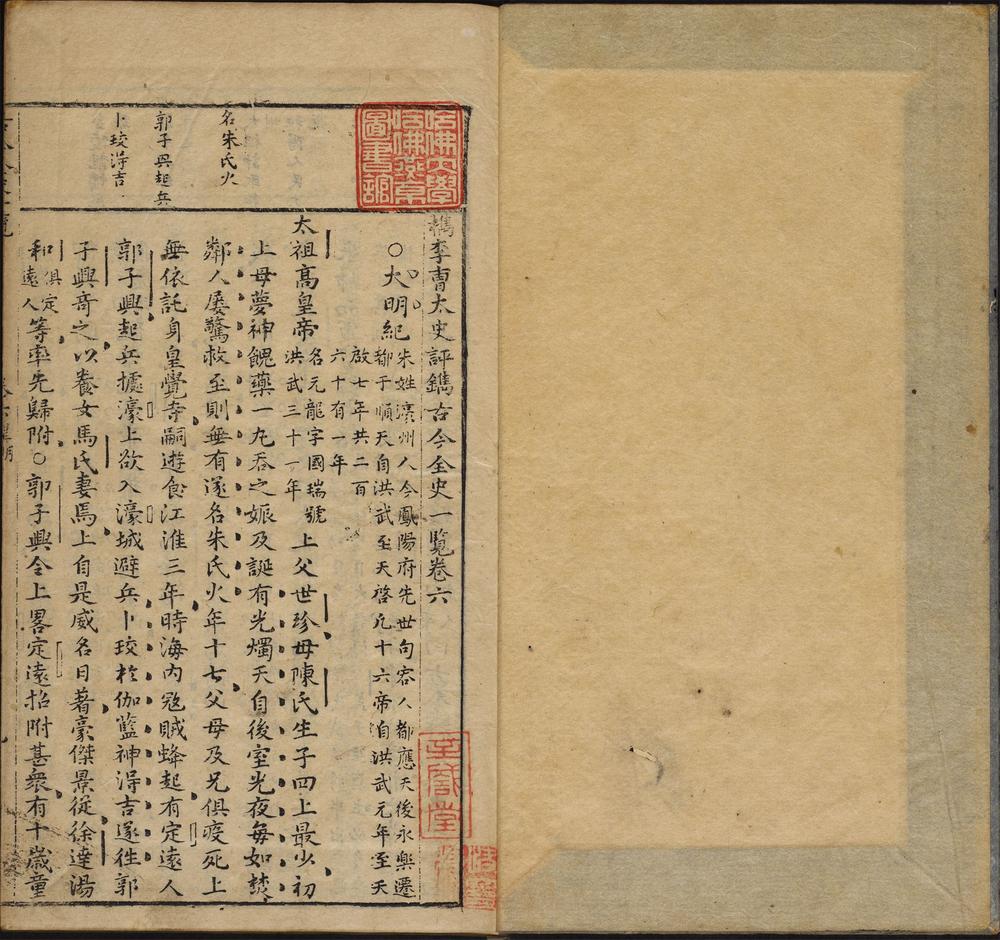 檇李曹太史評鐫古今全史一覽卷六
○大明紀
朱姓濠州人今鳳陽府先世句容人都應天後永樂遷
都于順天自洪武至天啓凡十六帝自洪武元年至天
啟七年共二百
六十有一年
太祖高皇帝
名元龍字國瑞號
洪武三十一年
上父世珍母陳氏生子四上最少初
上母夢神餽藥一丸吞之娠及誕有光燭天自後室光夜每如焚
鄰人屡驚救至則無有遂名朱氏火年十七父母及兄俱疫死上
無依託身皇覺寺嗣遊食江淮三年時海內寇賊蜂起有定遠人
郭子興起兵據濠上欲入濠城避兵卜珓於伽藍神得吉遂徃郭
子興竒之以養女馬氏妻焉上自是威名日著豪傑景從徐達湯
和俱定遠人等率先歸附○郭子興令上畧定遠招附甚衆有十歲童
名朱氏火
郭子興起兵
卜珓得吉
哈佛大學
哈佛燕京
圖書館